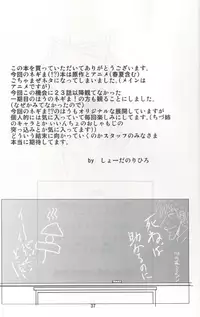 この本を買っていただいてありがとうございます。
今回のネギま!(?)本は原作とアニメ(春夏含む)
ごちゃまぜネタになってしまいました。(メインは
アニメですが)
今回この機会に23話以降観てなかった
一期目のほうのネギま!の方も観ることにしました。
(なぜかみてなかったので)
今回のネギま!?のほうもオリジナルな展開していますが
個人的には気に入っていて毎回楽しみにしてます。(ちづ姉
のキャラとかいいんちょのおしゃもじの
突っ込みとか気に入ってます)
どういう結末に向かっていくのかスタッフのみなさま
本当に期待してます。
by しょーだのりひろ
死ねば
助かるのに
37